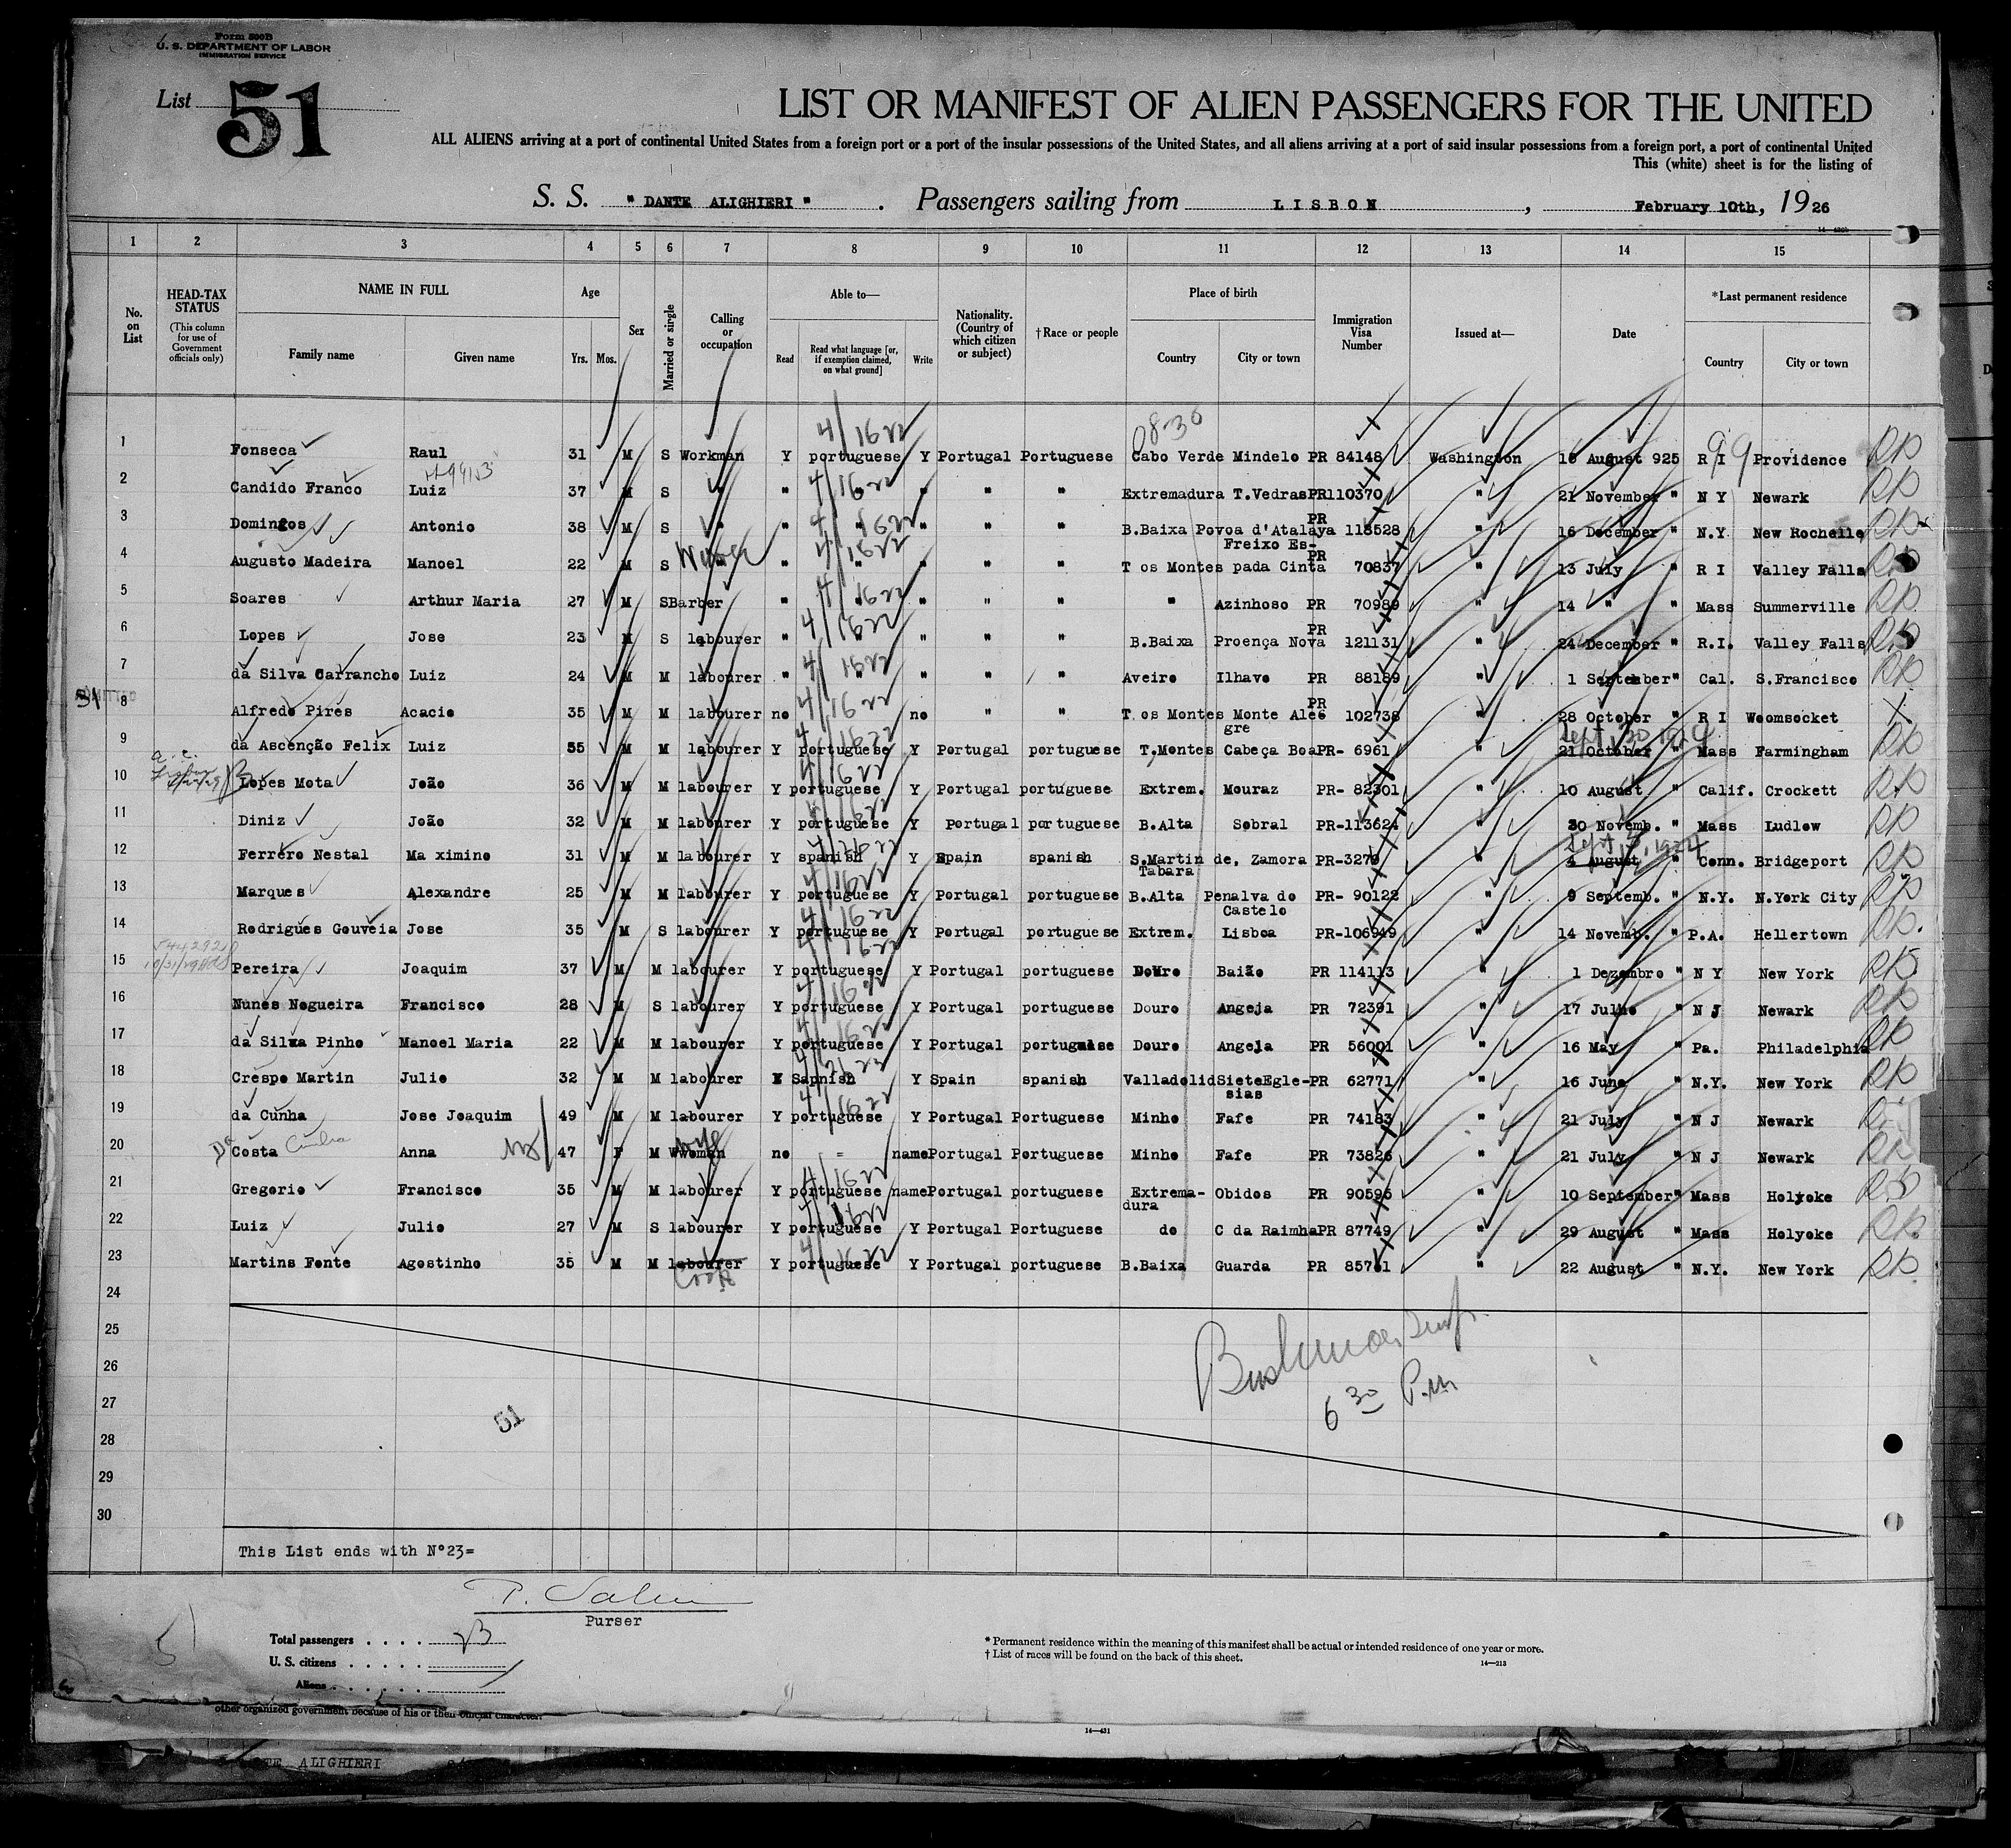 Form 500B
U. S. DEPARTMENT OF LABOR
IMMIGRATION SERVICE
List 51
LIST OR MANIFEST OF ALIEN PASSENGERS FOR THE UNITED
ALL ALIENS arriving at a port of continental United States from a foreign port or a port of the insular possessions of the United States, and all aliens arriving at a port of said insular possessions from a foreign port, a port of continental United
This (white) sheet is for the listing of
S. S. " DANTE ALIGHIERI " . Passengers sailing from LISBON , February 10th, 1926
1 2 3 4 5 6 7 8 9 10 11 12 13 14 15
No. on List
HEAD-TAX STATUS
(This column for use of Government officials only)
NAME IN FULL
Family name Given name
Age
Yrs. Mos.
Sex
Married or single
Calling or occupation
Able to—
Read Read what language [or, if exemption claimed, on what ground] Write
Nationality. (Country of which citizen or subject)
†Race or people
Place of birth
Country City or town
Immigration Visa Number
Issued at—
Date
*Last permanent residence
Country City or town
1 Fonseca Raul 31 M S Workman Y portuguese Y Portugal Portuguese Cabo Verde Mindelo PR 84148 Washington 18 August 925 R I Providence
2 Candido Franco Luiz 37 M S " " " " " " Extremadura T.Vedras PR110370 " 21 November " N Y Newark
3 Domingos Antonio 38 M S " " " " " " B.Baixa Povoa d'Atalaya PR 118528 " 16 December " N.Y. New Rochelle
4 Augusto Madeira Manoel 22 M S " " " " " " T os Montes Freixo Espada Cinta PR 70837 " 13 July " R I Valley Falls
5 Soares Arthur Maria 27 M S Barber " " " " " " Azinhoso PR 70989 " 14 " " Mass Summerville
6 Lopes Jose 23 M S labourer " " " " " B.Baixa Proença Nova PR 121131 " 24 December " R.I. Valley Falls
7 da Silva Carrancho Luiz 24 M M labourer " " " " " Aveiro Ilhavo PR 88189 " 1 September " Cal. S.Francisco
8 Alfredo Pires Acacio 35 M M labourer no no " " T os Montes Monte Alegre PR 102738 " 28 October " R I Woomsocket
9 da Ascenção Felix Luiz 55 M M labourer Y portuguese Y Portugal portuguese T,Montes Cabeça Boa PR- 6961 " 21 October " Mass Farmingham
10 Lopes Mota João 36 M M labourer Y portuguese Y Portugal portuguese Extrem. Mouraz PR- 82301 " 10 August " Calif. Crockett
11 Diniz João 32 M M labourer Y portuguese Y Portugal portuguese B.Alta Sobral PR-113624 " 30 Novemb. " Mass Ludlow
12 Ferrero Nestal Ma ximino 31 M M labourer Y spanish Y Spain spanish S.Martin de, Tabara Zamora PR-3279 " 4 August " Conn. Bridgeport
13 Marques Alexandre 25 M M labourer Y portuguese Y Portugal portuguese B.Alta Penalva do Castelo PR- 90122 " 9 Septemb. " N.Y. N.York City
14 Rodrigues Gouveia Jose 35 M S labourer Y portuguese Y Portugal portuguese Extrem. Lisboa PR-106949 " 14 Novemb. " P.A. Hellertown
15 Pereira Joaquim 37 M M labourer Y portuguese Y Portugal portuguese Douro Baião PR 114113 " 1 Dezembro " N Y New York
16 Nunes Nogueira Francisco 28 M S labourer Y portuguese Y Portugal portuguese Douro Angeja PR 72391 " 17 Julho " N J Newark
17 da Silva Pinho Manoel Maria 22 M M labourer Y portuguese Y Portugal portuguese Douro Angeja PR 56001 " 16 May " Pa. Philadelphia
18 Crespo Martin Julio 32 M M labourer Y Sapnish Y Spain spanish Valladolid SieteEgle-sias PR 62771 " 16 June " N.Y. New York
19 da Cunha Jose Joaquim 49 M M labourer Y portuguese Y Portugal Portuguese Minho Fafe PR 74183 " 21 July " N J Newark
20 Da Costa Cunha Anna 47 F M Woman wife no = name Portugal Portuguese Minho Fafe PR 73826 " 21 July " N J Newark
21 Gregorio Francisco 35 M M labourer Y portuguese name Portugal portuguese Extrema-dura Obidos PR 90596 " 10 September " Mass Holyoke
22 Luiz Julio 27 M S labourer Y portuguese Y Portugal Portuguese do C da Raimha PR 87749 " 29 August " Mass Holyoke
23 Martins Fonte Agostinho 35 M M labourer Cook Y portuguese Y Portugal portuguese B.Baixa Guarda PR 85761 " 22 August " N.Y. New York
24
25
26
27
28
29
30
6 30 P.m
51
This List ends with N°23=
Purser
Total passengers . . . . 23
U. S. citizens . . . . .
Aliens . . . . . .
* Permanent residence within the meaning of this manifest shall be actual or intended residence of one year or more.
† List of races will be found on the back of this sheet.
14—213
other organized government because of his or their official character.
14—431
ALIGHIERI